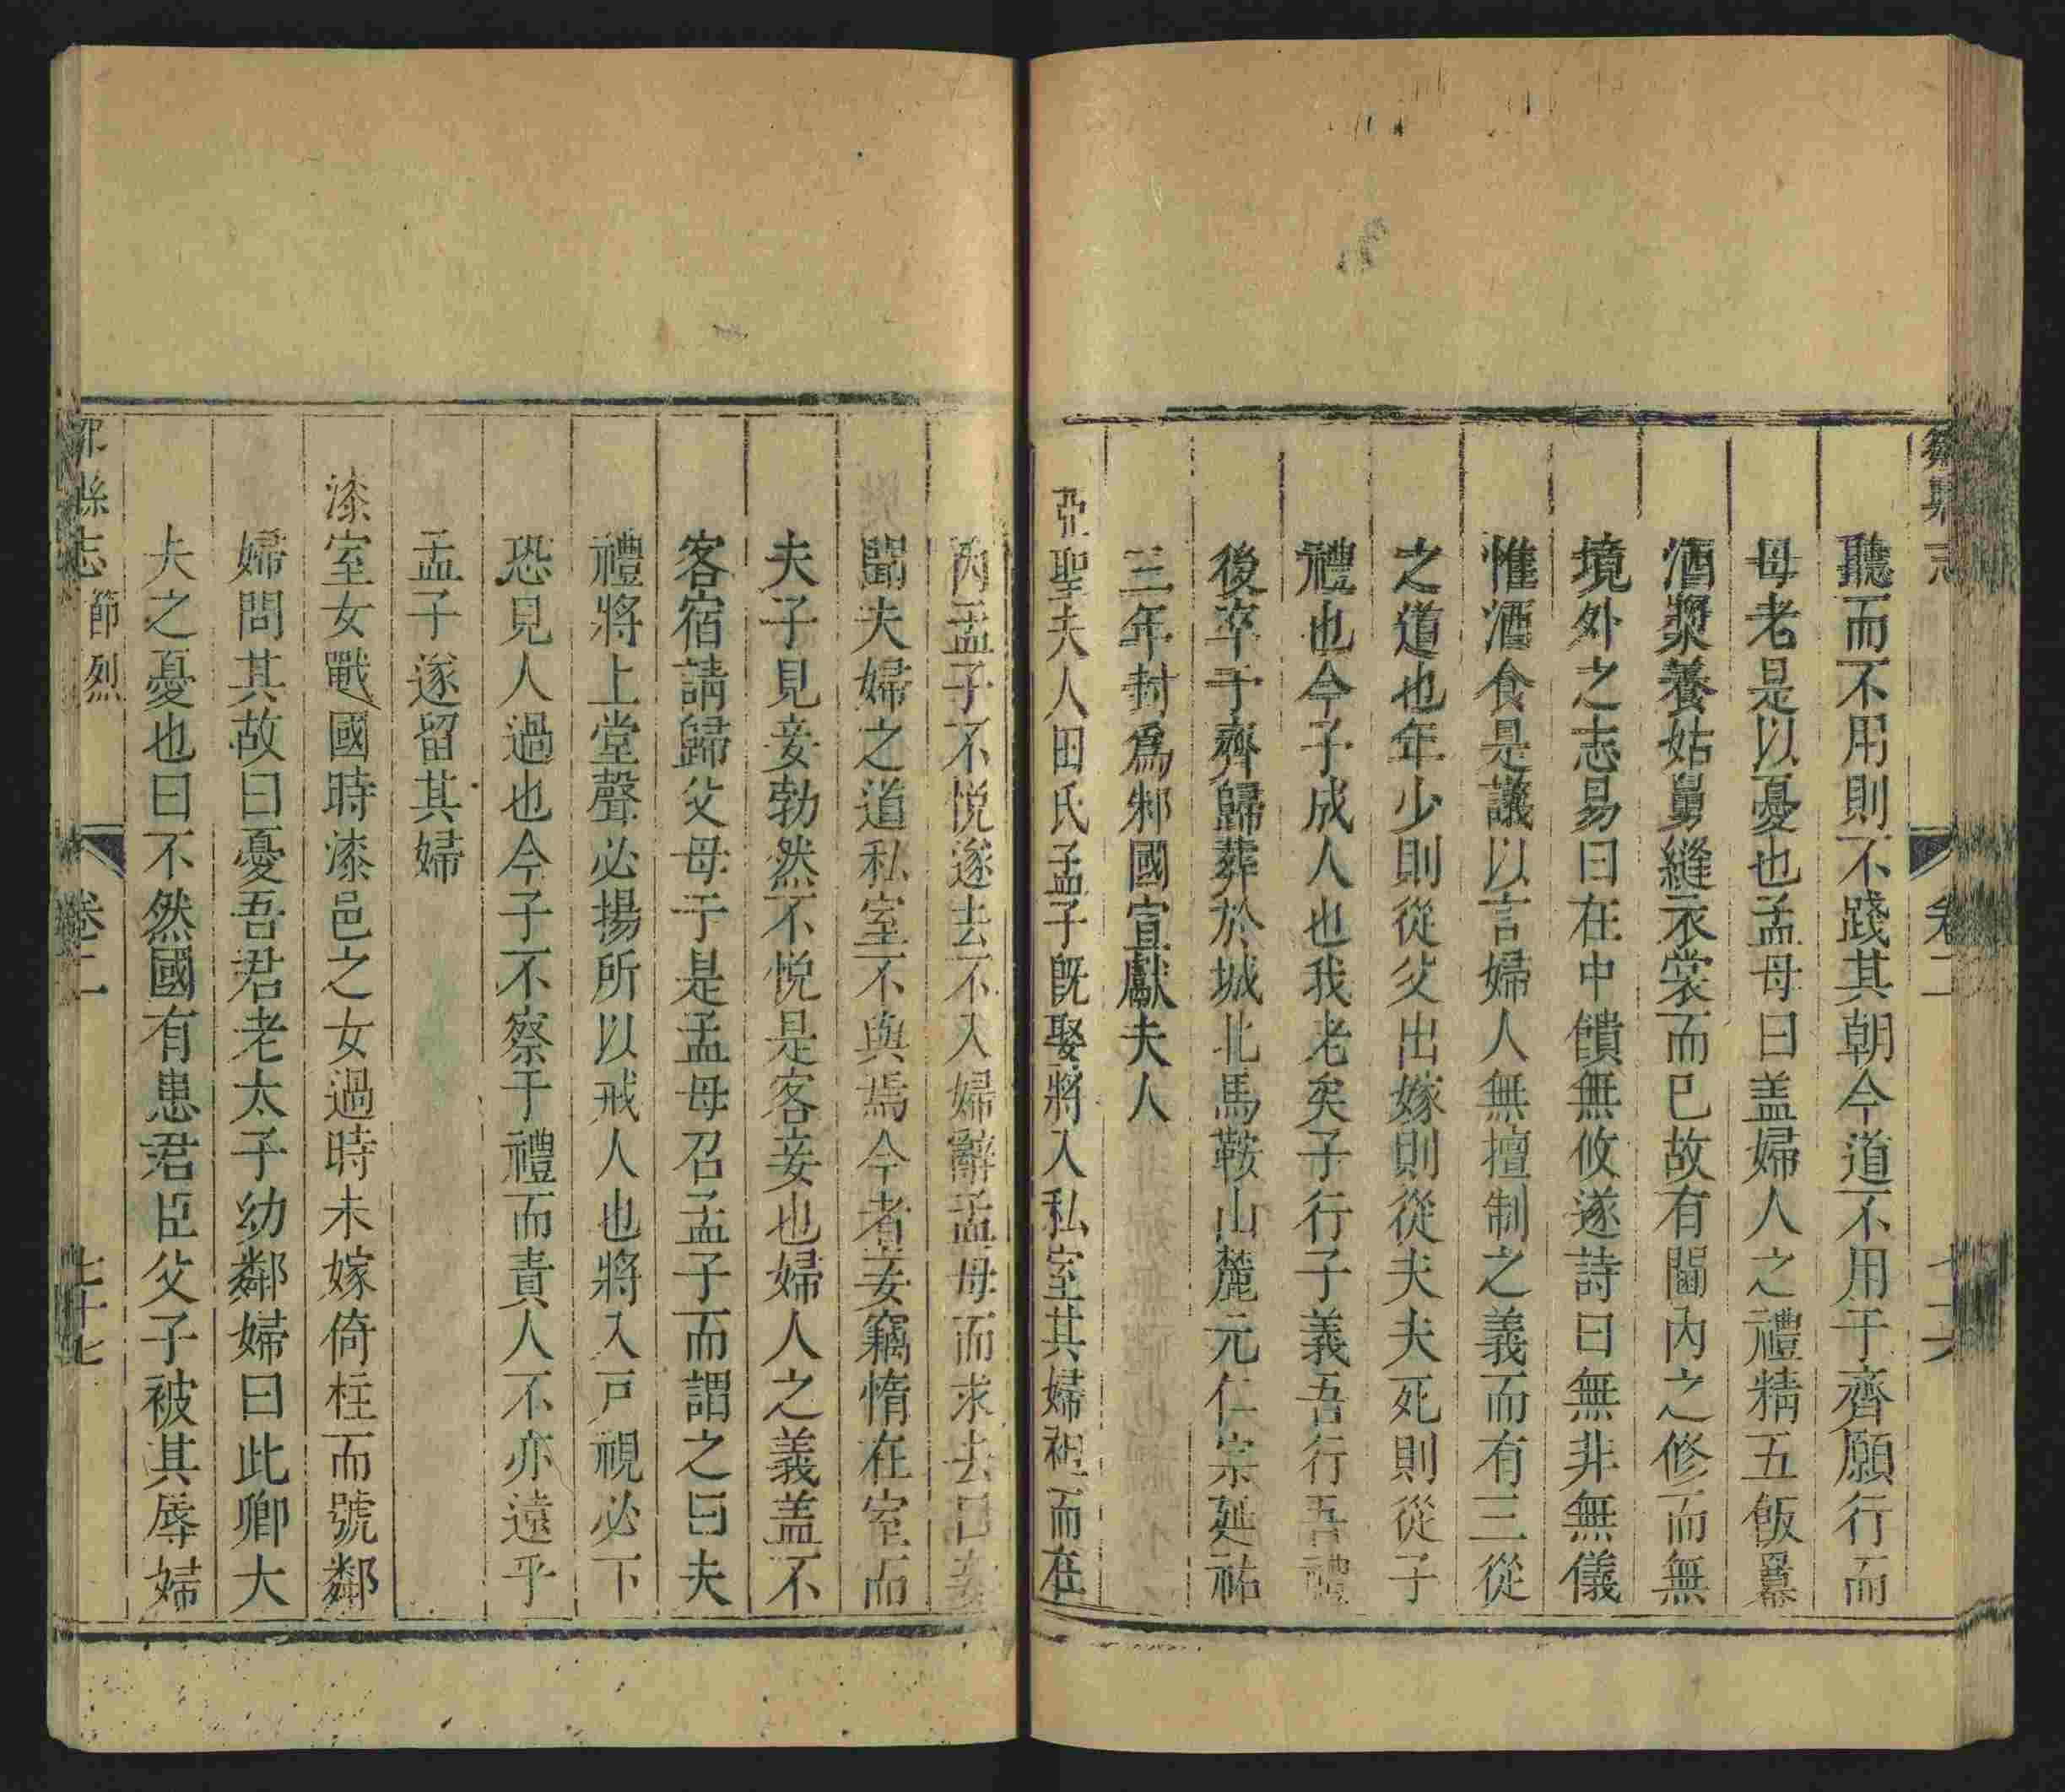 聽而不用則不踐其朝今道不用于齊願行而
母老是以憂也孟母曰盖婦人之禮精五飯羃
酒漿養姑舅縫衣裳而已故有閫內之修而無
境外之志易曰在中饋無攸遂詩曰無非無儀
惟酒食是議以言婦人無擅制之義而有三從
之道也年少則從父出嫁則從夫夫死則從子
禮也今子成人也我老矣子行子義吾行吾禮
後卒于齊歸葬於城北馬鞍山麓元仁宗延祐
三年封為邾國宣獻夫人
亞聖夫人田氏孟子旣娶將入私室其婦袒而在
內孟子不悅遂去不入婦辭孟母而求去曰妾
聞夫婦之道私室不與焉今者妾竊惰在室而
夫子見妾勃然不悅是客妾也婦人之義盖不
客宿請歸父母于是孟母召孟子而謂之曰夫
禮將上堂聲必揚所以戒人也將入戸視必下
恐見人過也今子不察于禮而責人不亦遠乎
孟子遂留其婦
漆室女戰國時漆邑之女過時未嫁倚柱而號鄰
婦問其故曰憂吾君老太子幼鄰婦曰此卿大
夫之憂也曰不然國有患君臣父子被其辱婦
縣志 節烈 卷二 七十七